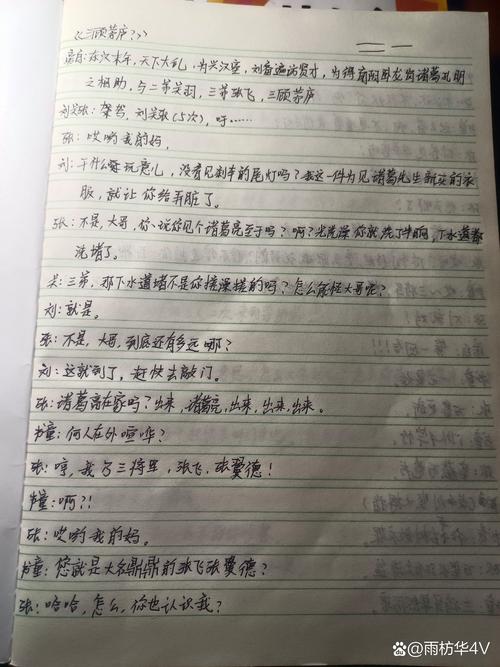 《三顾茅庐》
旁白:在汉末年,天下大乱,为兴汉室,刘备遍访贤才,为得南阳卧龙岗诸葛孔明
之相助,与二弟关羽,三弟张飞,三顾茅庐
刘关张:驾驾,刘关张(5次),吁……
张:哎哟我的妈,
刘:干什么玩意儿,没看见刹车的尾灯吗?我这一件为见诸葛先生新买的衣
服,就让你给弄脏了。
张:不是,大哥,你说你见个诸葛亮至于吗?啊?光洗澡你就洗了半晌,下水道都
洗堵了。
关:三弟,那下水道堵不是你搓澡搓的吗?怎么能怪大哥呢?
刘:就是。
张:不是,大哥,到底还有多远哪?
刘:这就到了,赶快去敲门。
张:诸葛亮在家吗?出来,诸葛亮,出来,出来,出来。
书童:何人在外喧哗?
张:哼,我乃三将军,张飞,张翼德!
书童:啊?!
张:哎哟我的妈。
书童:您就是大名鼎鼎的张飞张翼德?
张:哈哈,怎么,你也认识我?
@雨枋华4V